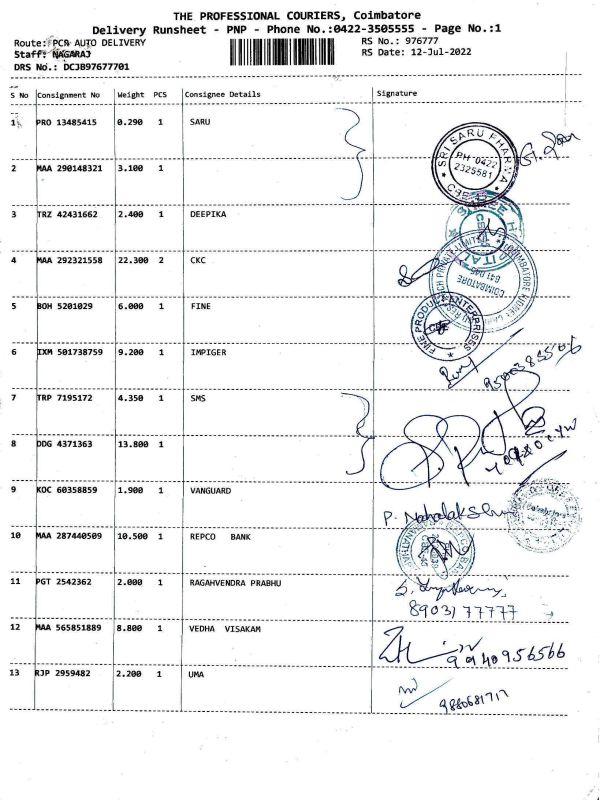 THE PROFESSIONAL COURIERS, Coimbatore
Delivery Runsheet - PNP - Phone No.:0422-3505555 - Page No.:1
Route: PCR AUTO DELIVERY
RS No.: 976777
Staff: NAGARAJ
RS Date: 12-Jul-2022
DRS No.: DCJB97677701
S No Consignment No Weight PCS Consignee Details Signature
1 PRO 13485415 0.290 1 SARU
SRI SARU PHARMA
PH 0422
2325581
2 MAA 290148321 3.100 1
3 TRZ 42431662 2.400 1 DEEPIKA
4 MAA 292321558 22.300 2 CKC
COIMBATORE
641 045
5 BOH 5201029 6.000 1 FINE
FINE PRODUCT ENTERPRISES
6 IXM 501738759 9.200 1 IMPIGER
7 TRP 7195172 4.350 1 SMS
8 DDG 4371363 13.800 1
9 KOC 60358859 1.900 1 VANGUARD
10 MAA 287440509 10.500 1 REPCO BANK
11 PGT 2542362 2.000 1 RAGAHVENDRA PRABHU
8903177777
12 MAA 565851889 8.800 1 VEDHA VISAKAM
9940956566
13 RJP 2959482 2.200 1 UMA
9880681717